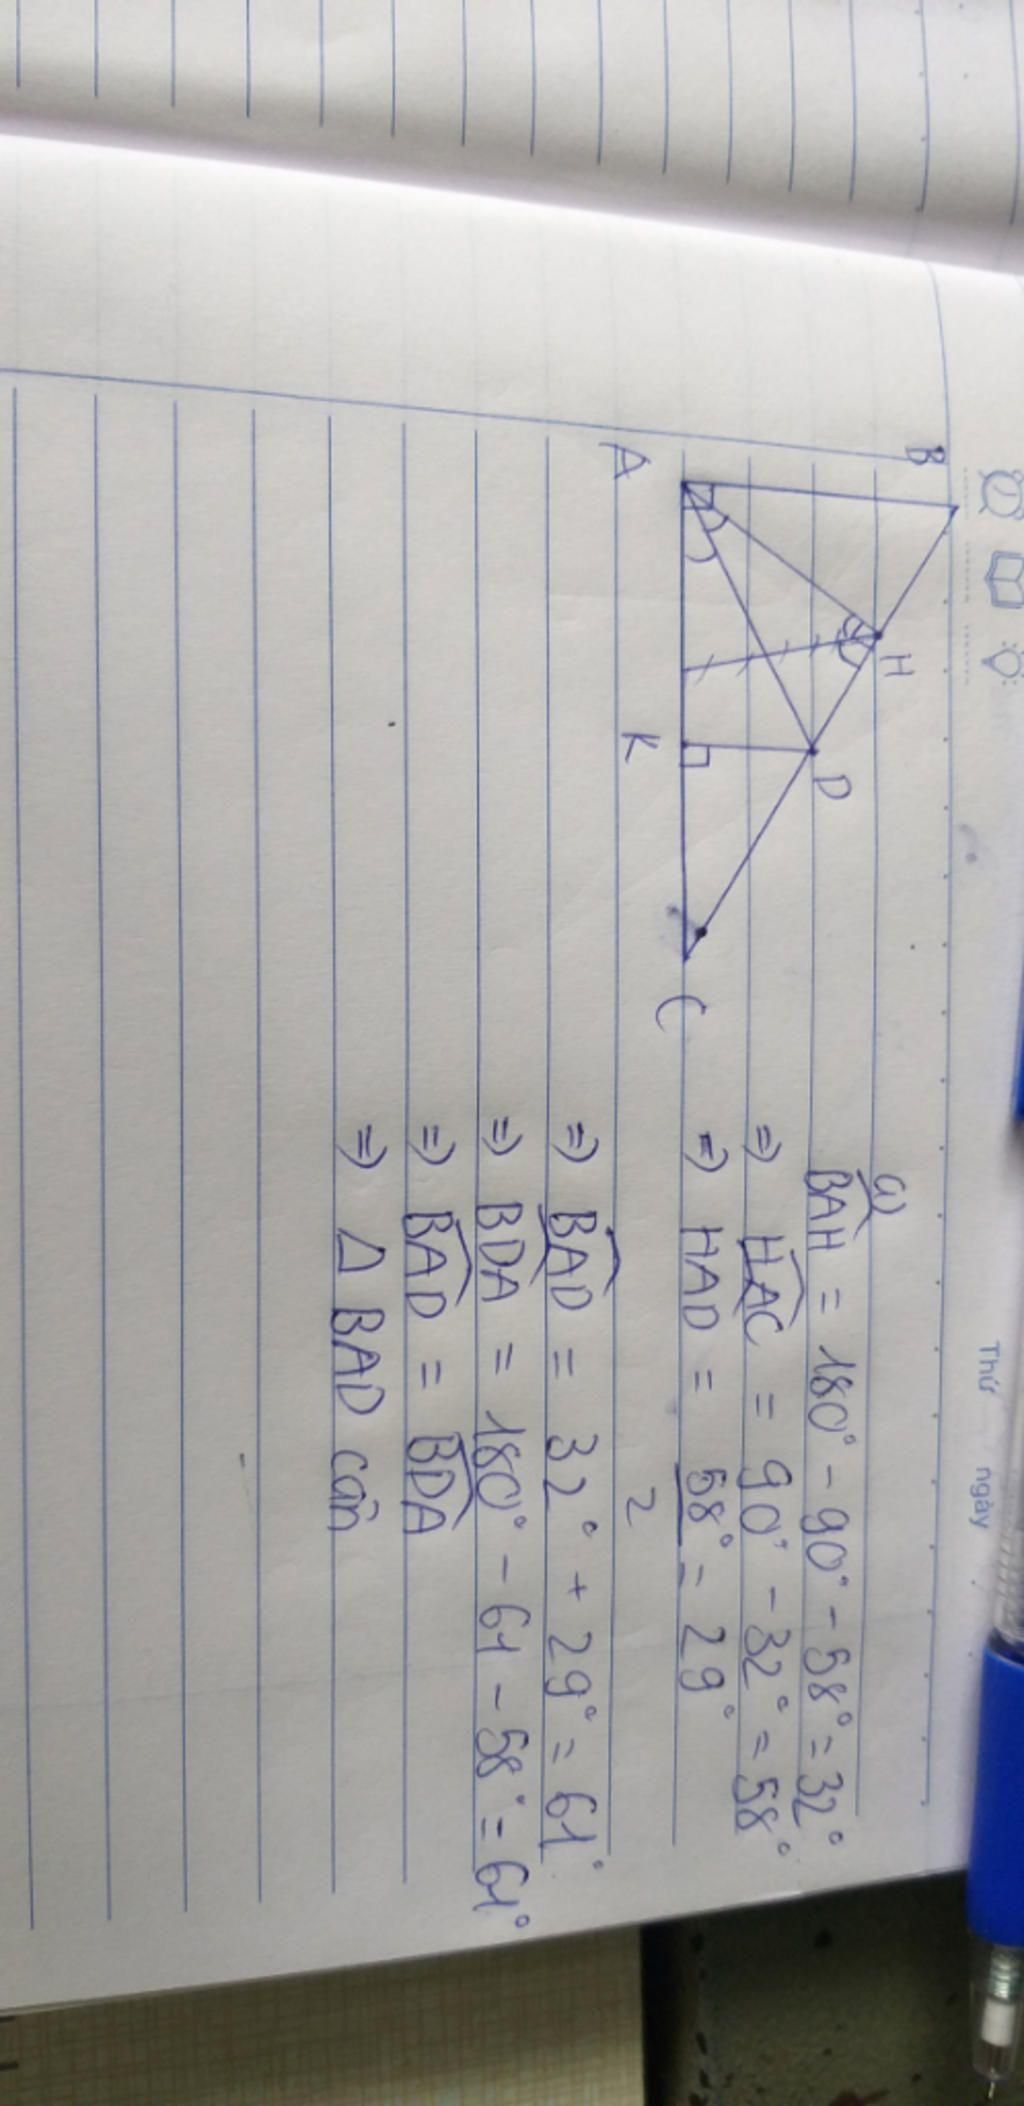 Thứ ngày
B
H
D
A
K
C
a)
BAH = 180° - 90° - 58° = 32°
=> HAC = 90° - 32° = 58°
=> HAD = 58° = 29°
2
=> BAD = 32° + 29° = 61°
=> BDA = 180° - 61 - 58° = 61°
=> BAD = BDA
=> Δ BAD cân